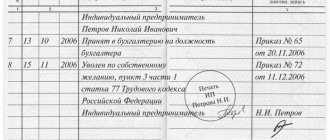 внесена запись
Индивидуальный предприниматель
Петров Николай Иванович
7 13 10 2006 Принят в бухгалтерию на должность Приказ № 65
бухгалтера от 20.11.2006
8 15 11 2006 Уволен по собственному Приказ № 72
желанию, пункт 3 части 1 от 11.12.2006
статьи 77 Трудового кодекса
Российской Федерации
Индивидуальный предприниматель Н.И. Петров
Печать
ИП
Петрова Н.И.